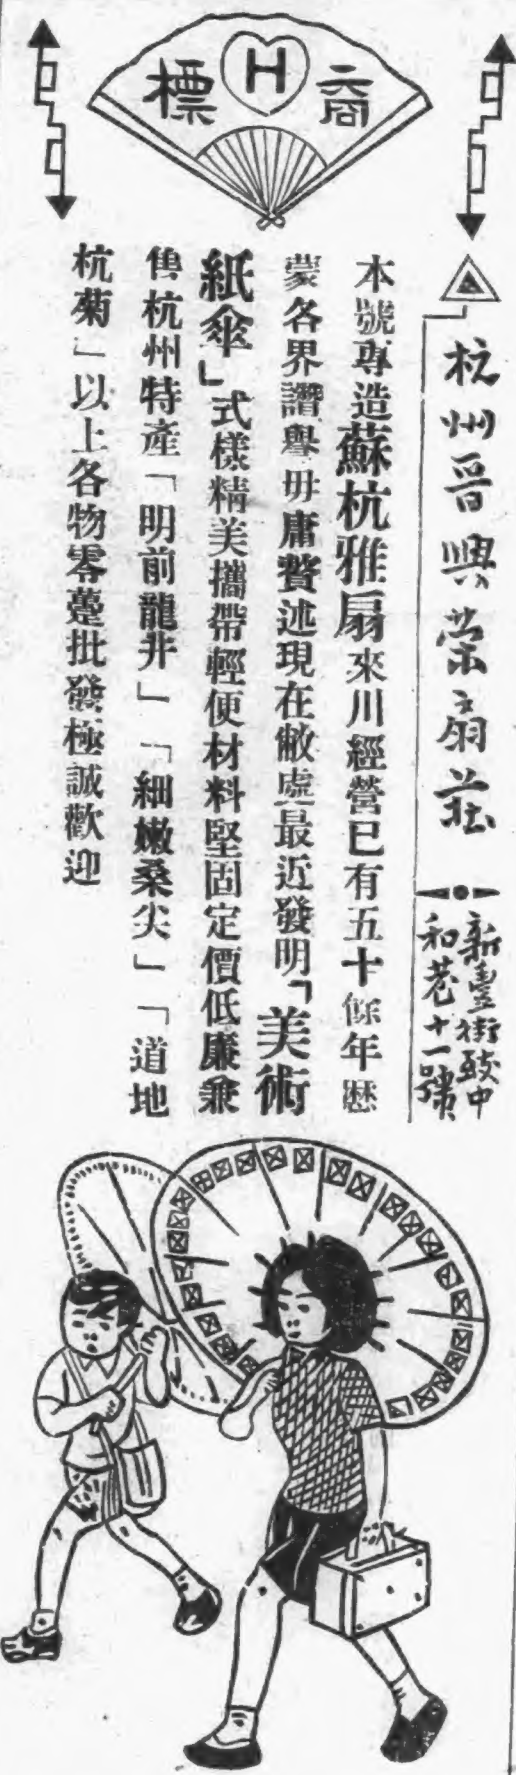 商標
H
杭州晋興荣扇莊
新臺街致中
和巷十一號
本號專造蘇杭雅扇來川經營已有五十餘年歷
蒙各界讚譽毋庸贅述現在敝處最近發明「美術
紙傘」式樣精美攜帶輕便材料堅固定價低廉兼
售杭州特產「明前龍井」「細嫩桑尖」「道地
杭菊」以上各物零躉批發極誠歡迎